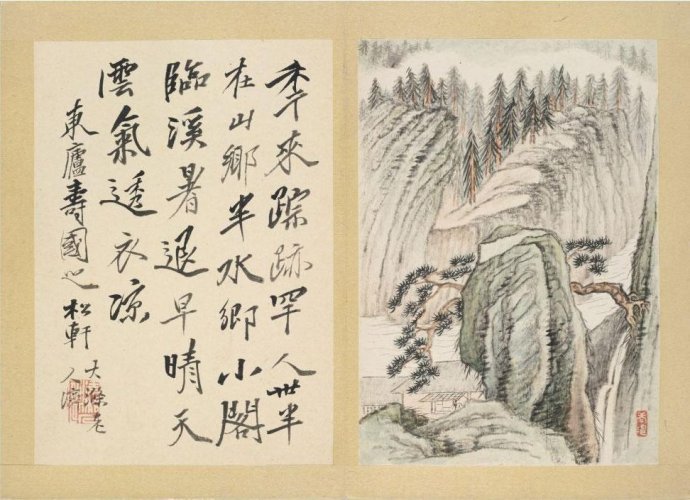 秊來踪跡罕人世半
在山鄉半水鄉小閣
臨溪暑退早晴天
雲氣透衣凉
東廬壽國之松軒
大滌老
人濟